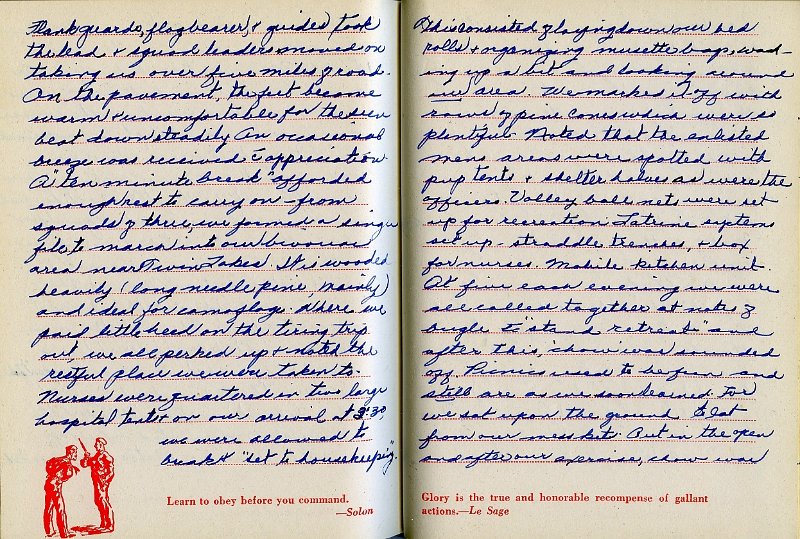 Flank guards, flag bearers, & guides took
the lead & squad leaders moved on
taking us over five miles of road.
On the pavement, the feet became
warm & uncomfortable for the sun
beat down steadily. An occasional
breeze was received c̄ appreciation.
A "ten minute break" afforded
enough rest to carry on - from
squads of three, we formed a single
file to march into our bivouac
area near Twin Lakes. It is wooded
heavily (long needle pine, mainly)
and ideal for camoflage. Where we
paid little heed on the tiring trip
out, we all perked up & noted the
restful place we were taken to.
Nurses were quartered in two large
hospital tents & on our arrival at 3:30,
we were allowed to
break & "set to housekeeping".
Learn to obey before you command.
—Solon
This consisted of laying down our bed
rolls & organizing musette bags, wash-
ing up a bit and looking around
our area. We marked it off with
rows of pine cones which were so
plentiful. Noted that the enlisted
mens areas were spotted with
pup tents & shelter halves as were the
officers. Volley ball nets were set
up for recreation. Latrine systems
set up - straddle trenches, & box
for nurses. Mobile kitchen unit.
At five each evening we were
all called together at notes of
bugle to "stand retreat" and
after this, 'chow' was sounded
off. Picnics used to be fun and
still are as we soon learned. For
we sat upon the ground to eat
from our mess kit. But in the open
and after our exercise, chow was
Glory is the true and honorable recompense of gallant
actions.—Le Sage